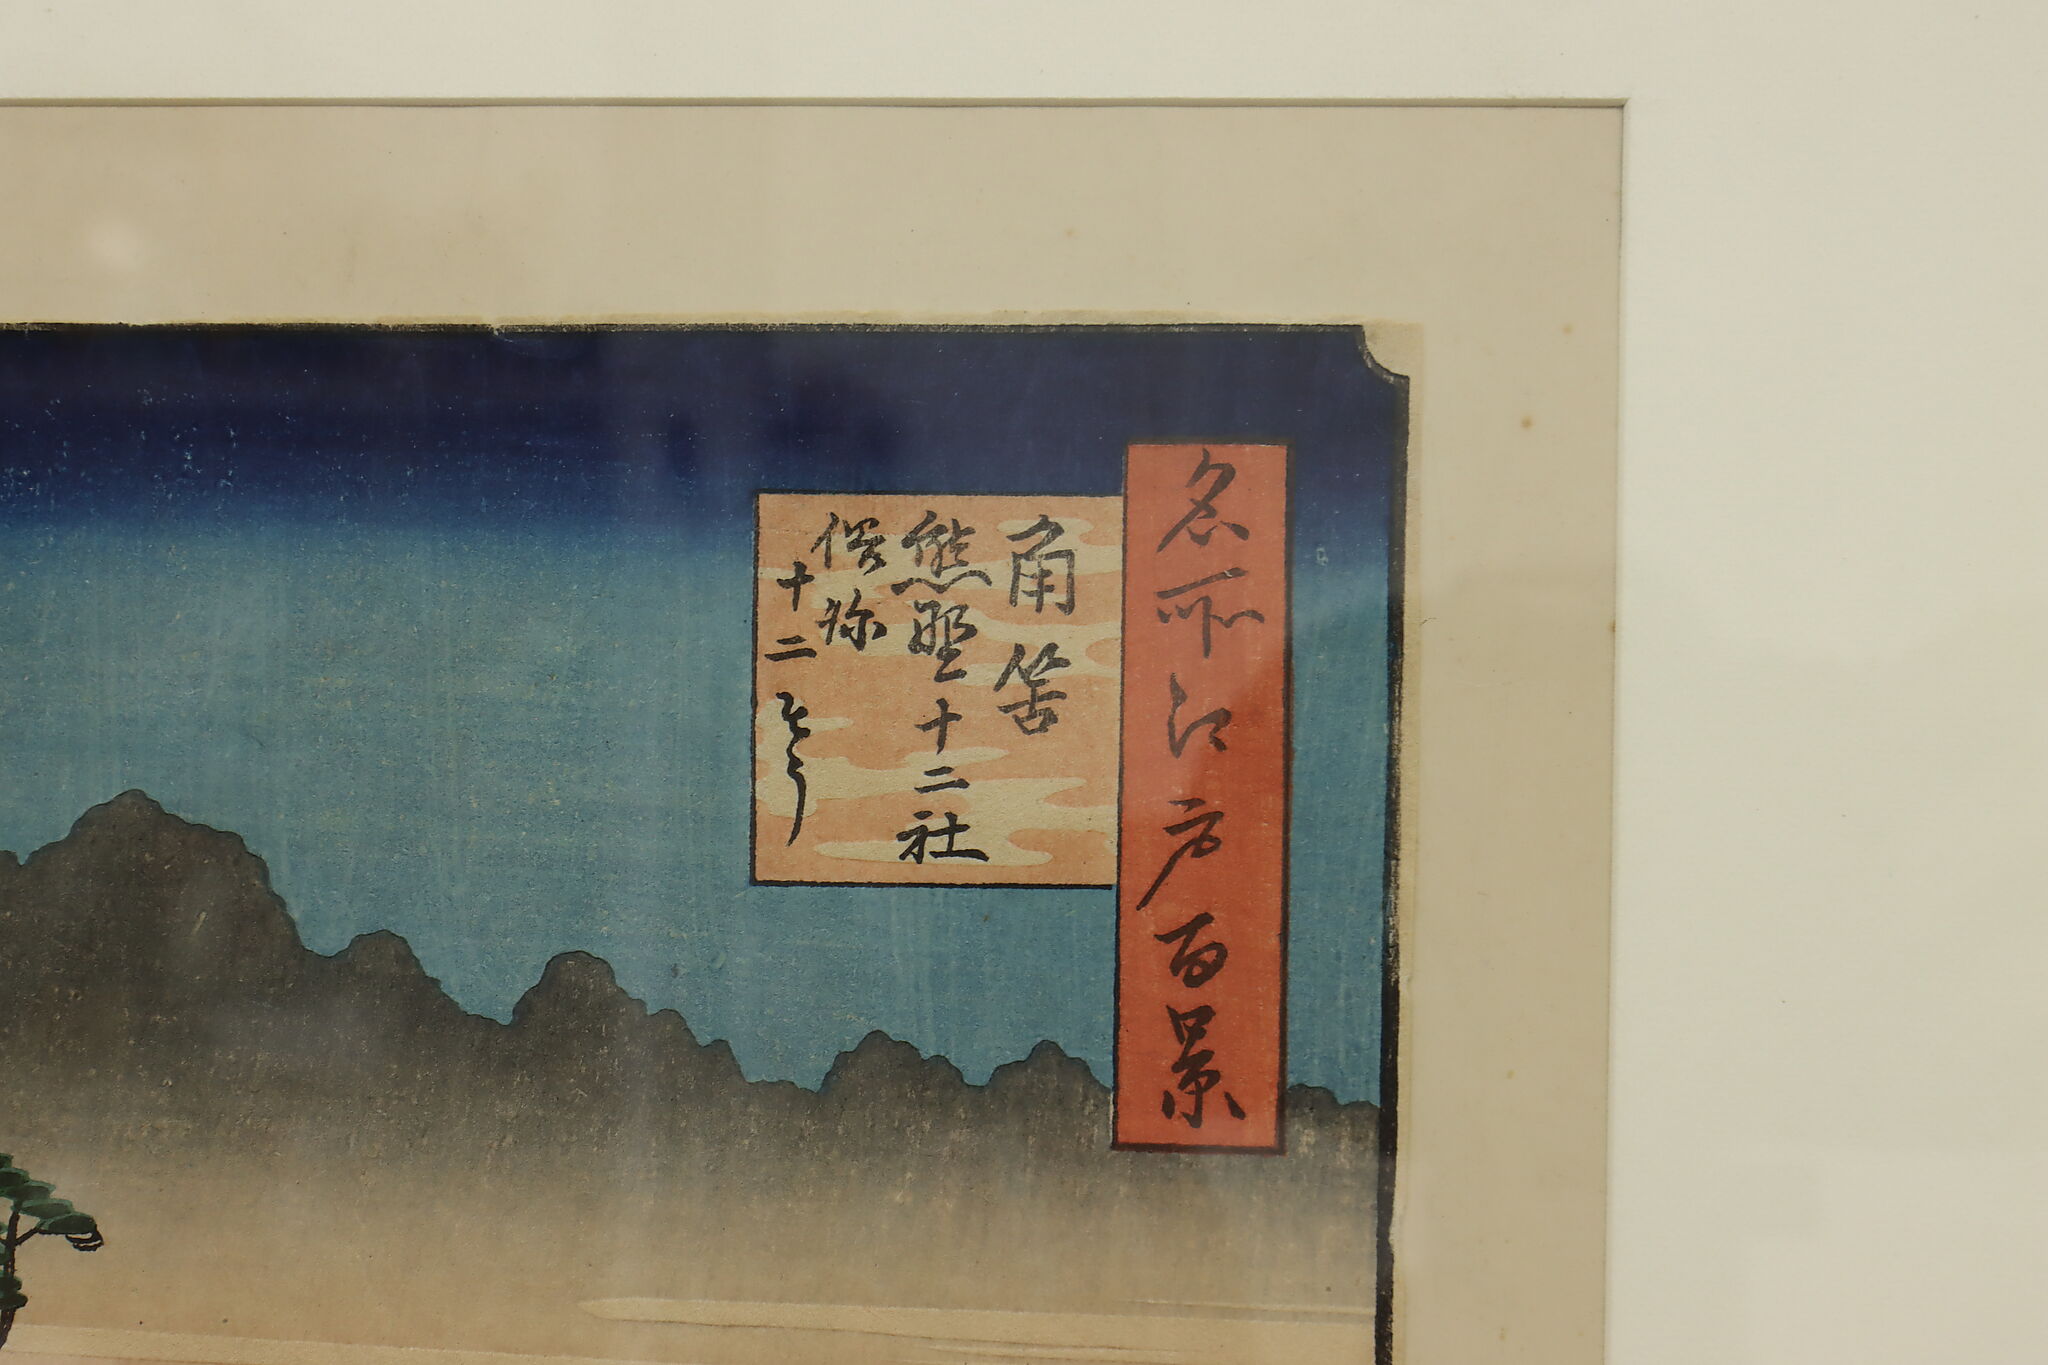 名所江戸百景
角筈
熊野十二社
俗称
十二そう